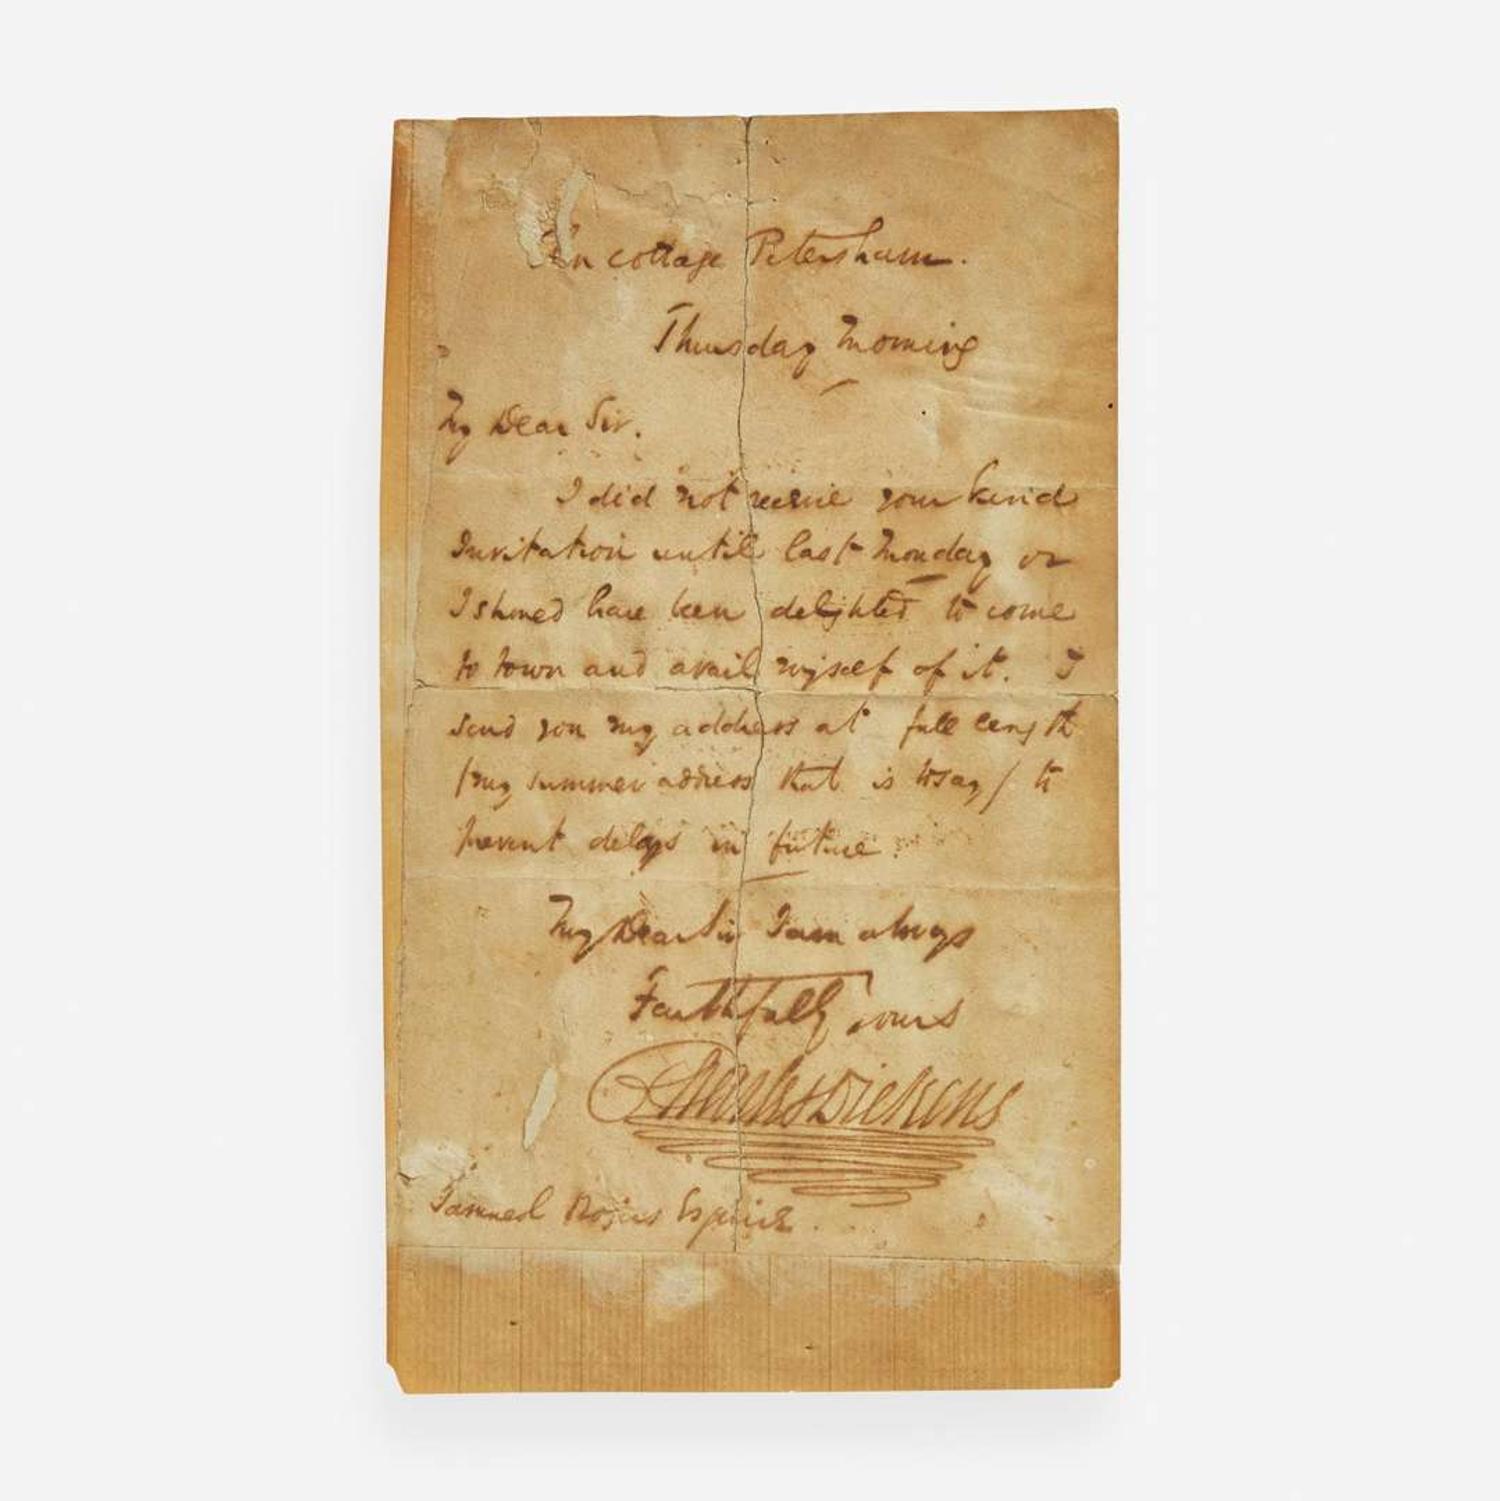 Cottage Petersham.
Thursday Morning
My Dear Sir.
I did not receive your kind
Invitation until last Monday or
I should have been delighted to come
to town and avail myself of it. I
send you my address at full length
/my summer address that is to say/ to
prevent delays in future.
My Dear Sir I am always
Faithfully Yours
Charles Dickens
Samuel Rogers Esquire.